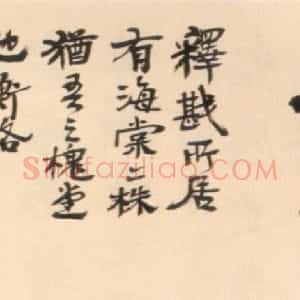 釋戡所居
有海棠二株
猶吾之槐堂
也衡恪
Shufaziliao.COM